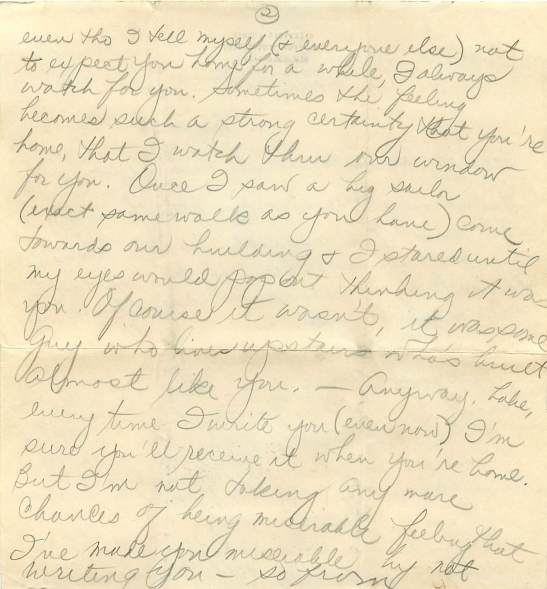 2
even tho I tell myself (& everyone else) not
to expect you home for a while, I always
watch for you. Sometimes the feeling
becomes such a strong certainty that you're
home, that I watch thru our window
for you. Once I saw a big sailor
(exact same walk as you have) come
towards our building & I stared until
my eyes would pop out thinking it was
you. Of course it wasn't, it was some
guy who lives upstairs who's built
almost like you. — Anyway,
every time I write you (even now) I'm
sure you'll receive it when you're home.
But I'm not taking any more
chances of being miserable feeling that
I've made you miserable by not
writing you — so from